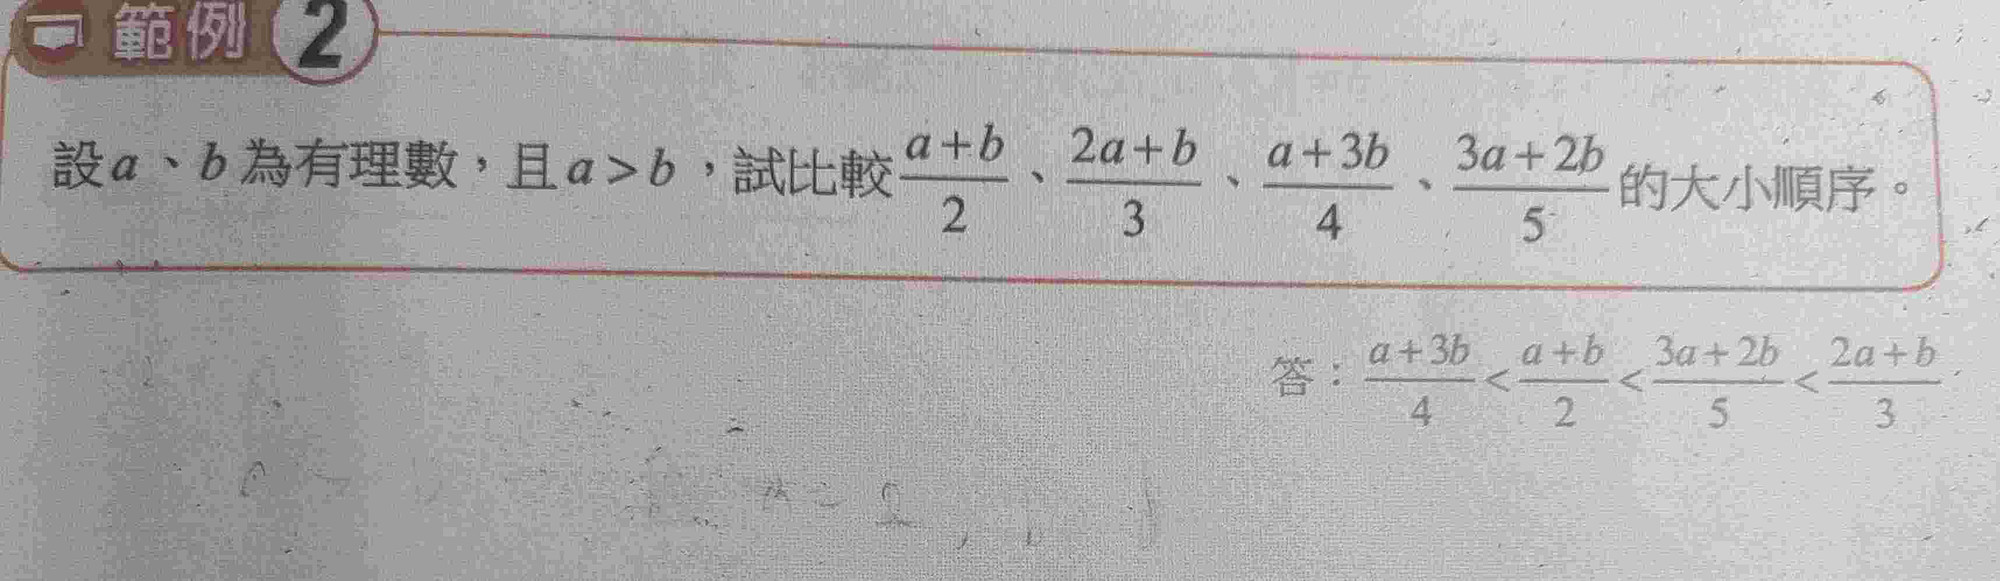 範例 2
設a、b為有理數，且a>b，試比較\frac{a+b}{2}、\frac{2a+b}{3}、\frac{a+3b}{4}、\frac{3a+2b}{5}的大小順序。
答：\frac{a+3b}{4}<\frac{a+b}{2}<\frac{3a+2b}{5}<\frac{2a+b}{3}